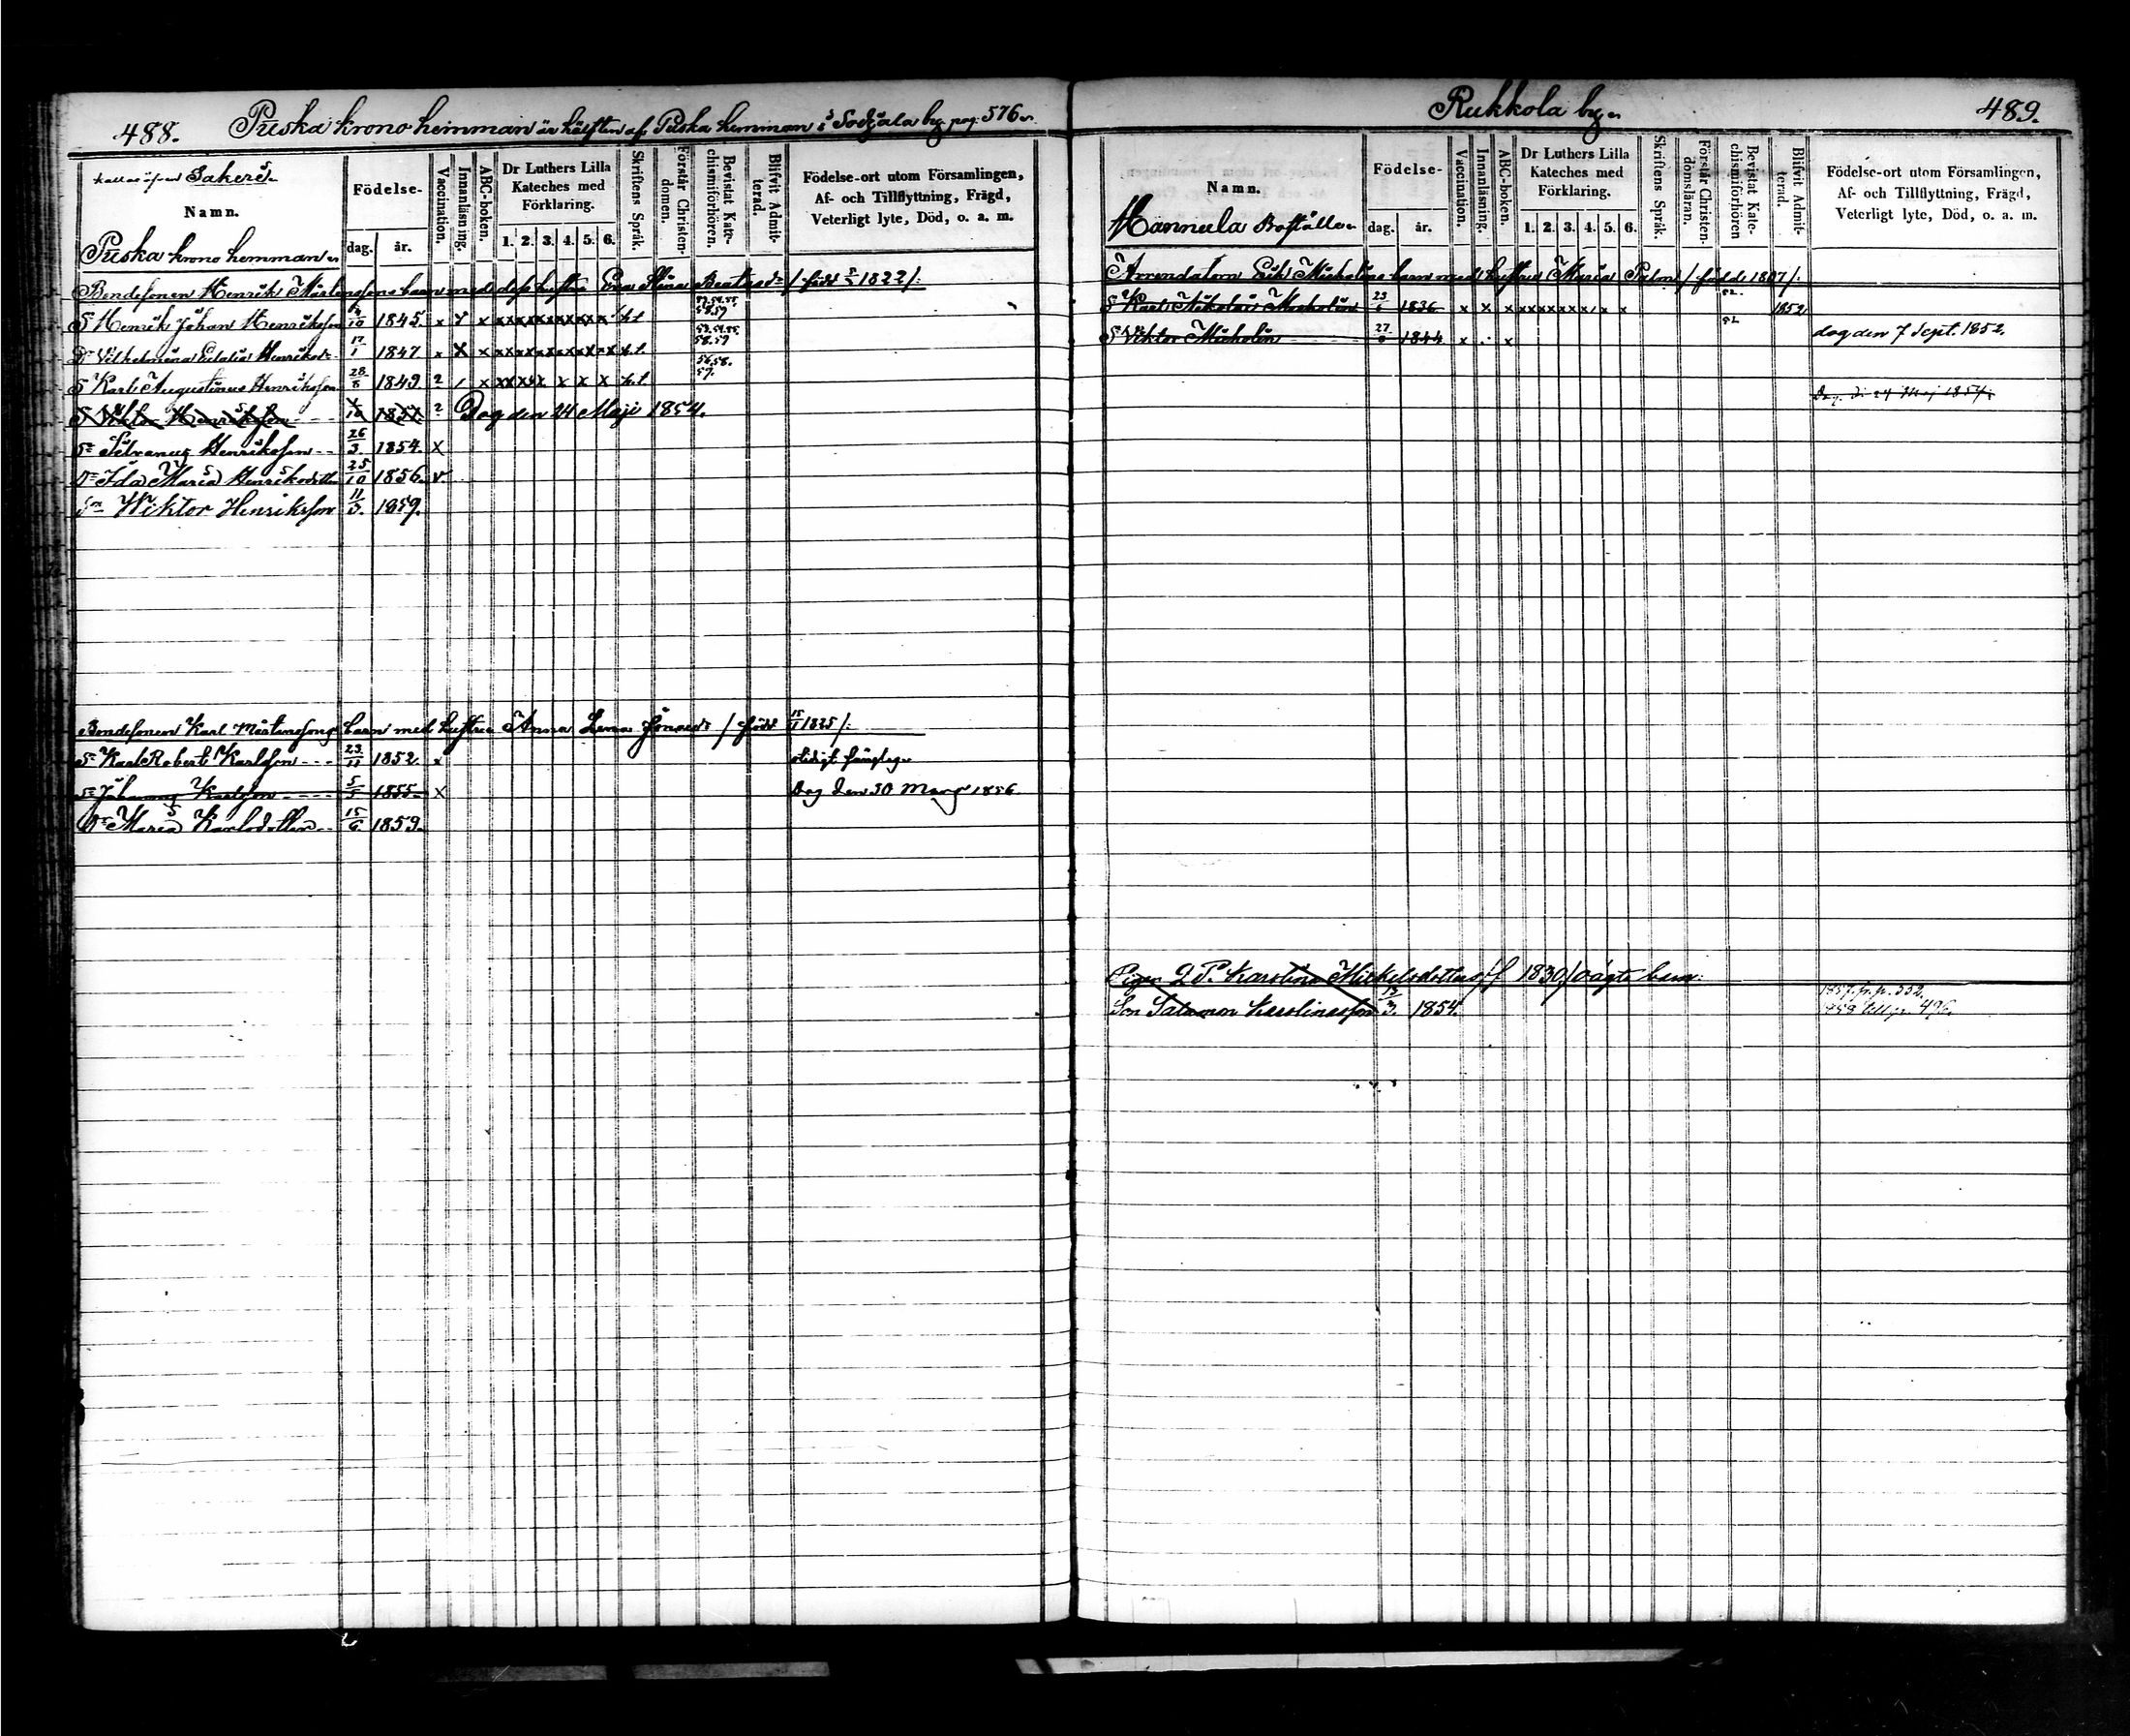 488. Puska krono heimman är hälften af Puska hemman i Sodjala by. pag: 576.
kallas äfven Sakeri.
Namn.
Födelse-
dag. år.
Vaccination.
Innanläsning.
ABC-boken.
Dr Luthers Lilla Kateches med Förklaring.
1. 2. 3. 4. 5. 6.
Skriftens Språk.
Förstår Christendomen.
Bevistat Katechismiförhören.
Blifvit Admitterad.
Födelse-ort utom Församlingen,
Af- och Tillflyttning, Frägd,
Veterligt lyte, Död, o. a. m.
Puska krono hemman
Bondesonen Henrik Mårtenssons barn med dess hustru Eva Stina Beatasdr / född 1822 /.
S Henrik Johan Henriksson 10 1845. x x x x x x x x x
Dr Vilhelmina Eulalia Henriksdr 17/1 1847 x x x x x x x x x 58.59
S Karl Augustinus Henriksson 28/8 1849 ? / x x x x x x x 56.58. 57.
S Viktor Henriksson 10 1851 ? Dog den 24 Maji 1854.
Sn Silvanus Henriksson 26/3 1854. x
Dr Ida Maria Henriksdotter 25/10 1856. v
Sn Wiktor Henriksson 11/3. 1859.
Bondesonen Karl Mårtenssons barn med hustru Anna Lena Jonasdr / född 1825 /.
Sn Karl Robert Karlsson 23/11 1852. x
Sn Johannes Karlsson 5/5 1855. x Dog den 30 Mars 1856
Dr Maria Karlsdotter 15/6 1859.
Rukkola by. 489.
Namn.
Födelse-
dag. år.
Vaccination.
Innanläsning.
ABC-boken.
Dr Luthers Lilla Kateches med Förklaring.
1. 2. 3. 4. 5. 6.
Skriftens Språk.
Förstår Christendomsläran.
Bevistat Katechismiförhören
Blifvit Admitterad.
Födelse-ort utom Församlingen,
Af- och Tillflyttning, Frägd,
Veterligt lyte, Död, o. a. m.
Mannula Boställe
Arrendatorn Erik Micholins barn med hustru Maria Palm / född 1807 /.
S Karl Nikolai Micholin 23 1836 x x x x x x x x x x 52. 1852
S Viktor Micholin 27 1844 x x 52 dog den 7 Sept. 1852.
Dog d. 24 Maj 1854.
Pigan Karolina Mickelsdotters /f 1830/ oägta barn.
Son Salamon Karolinasson 13/3. 1854. 1857. fr. p. 552.
1858 till p. 496.